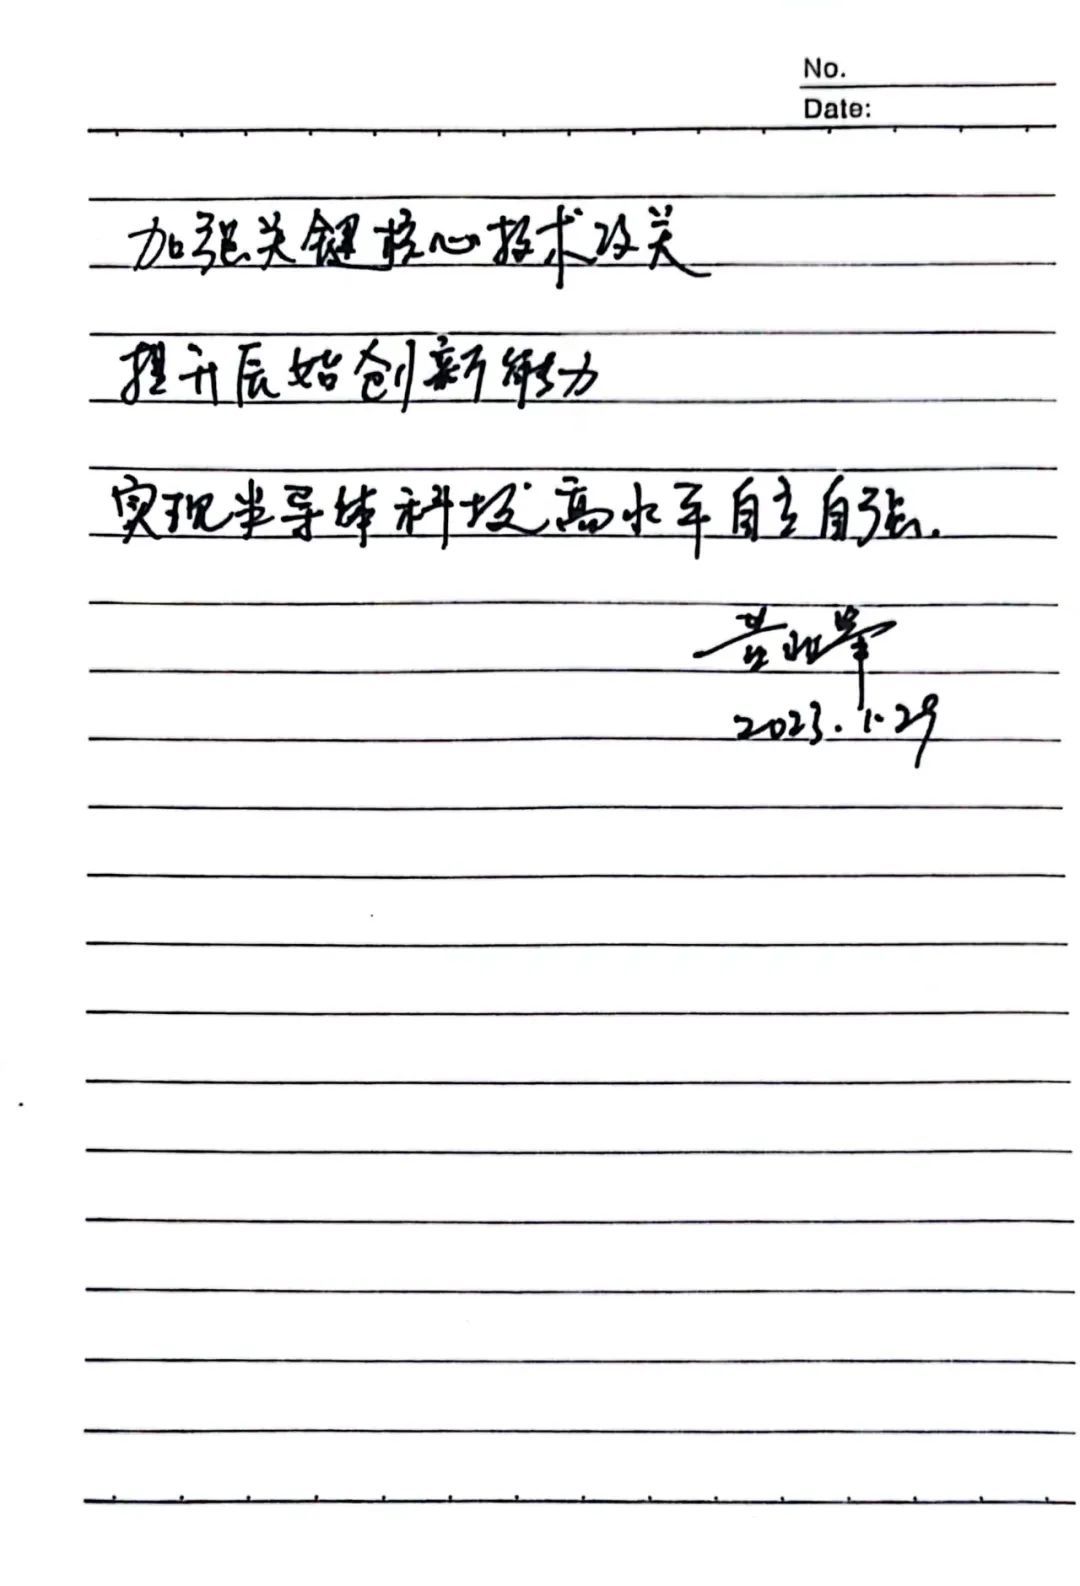 No.
Date:
加强关键核心技术攻关
提升原始创新能力
实现半导体科技高水平自立自强.
2023.1.29